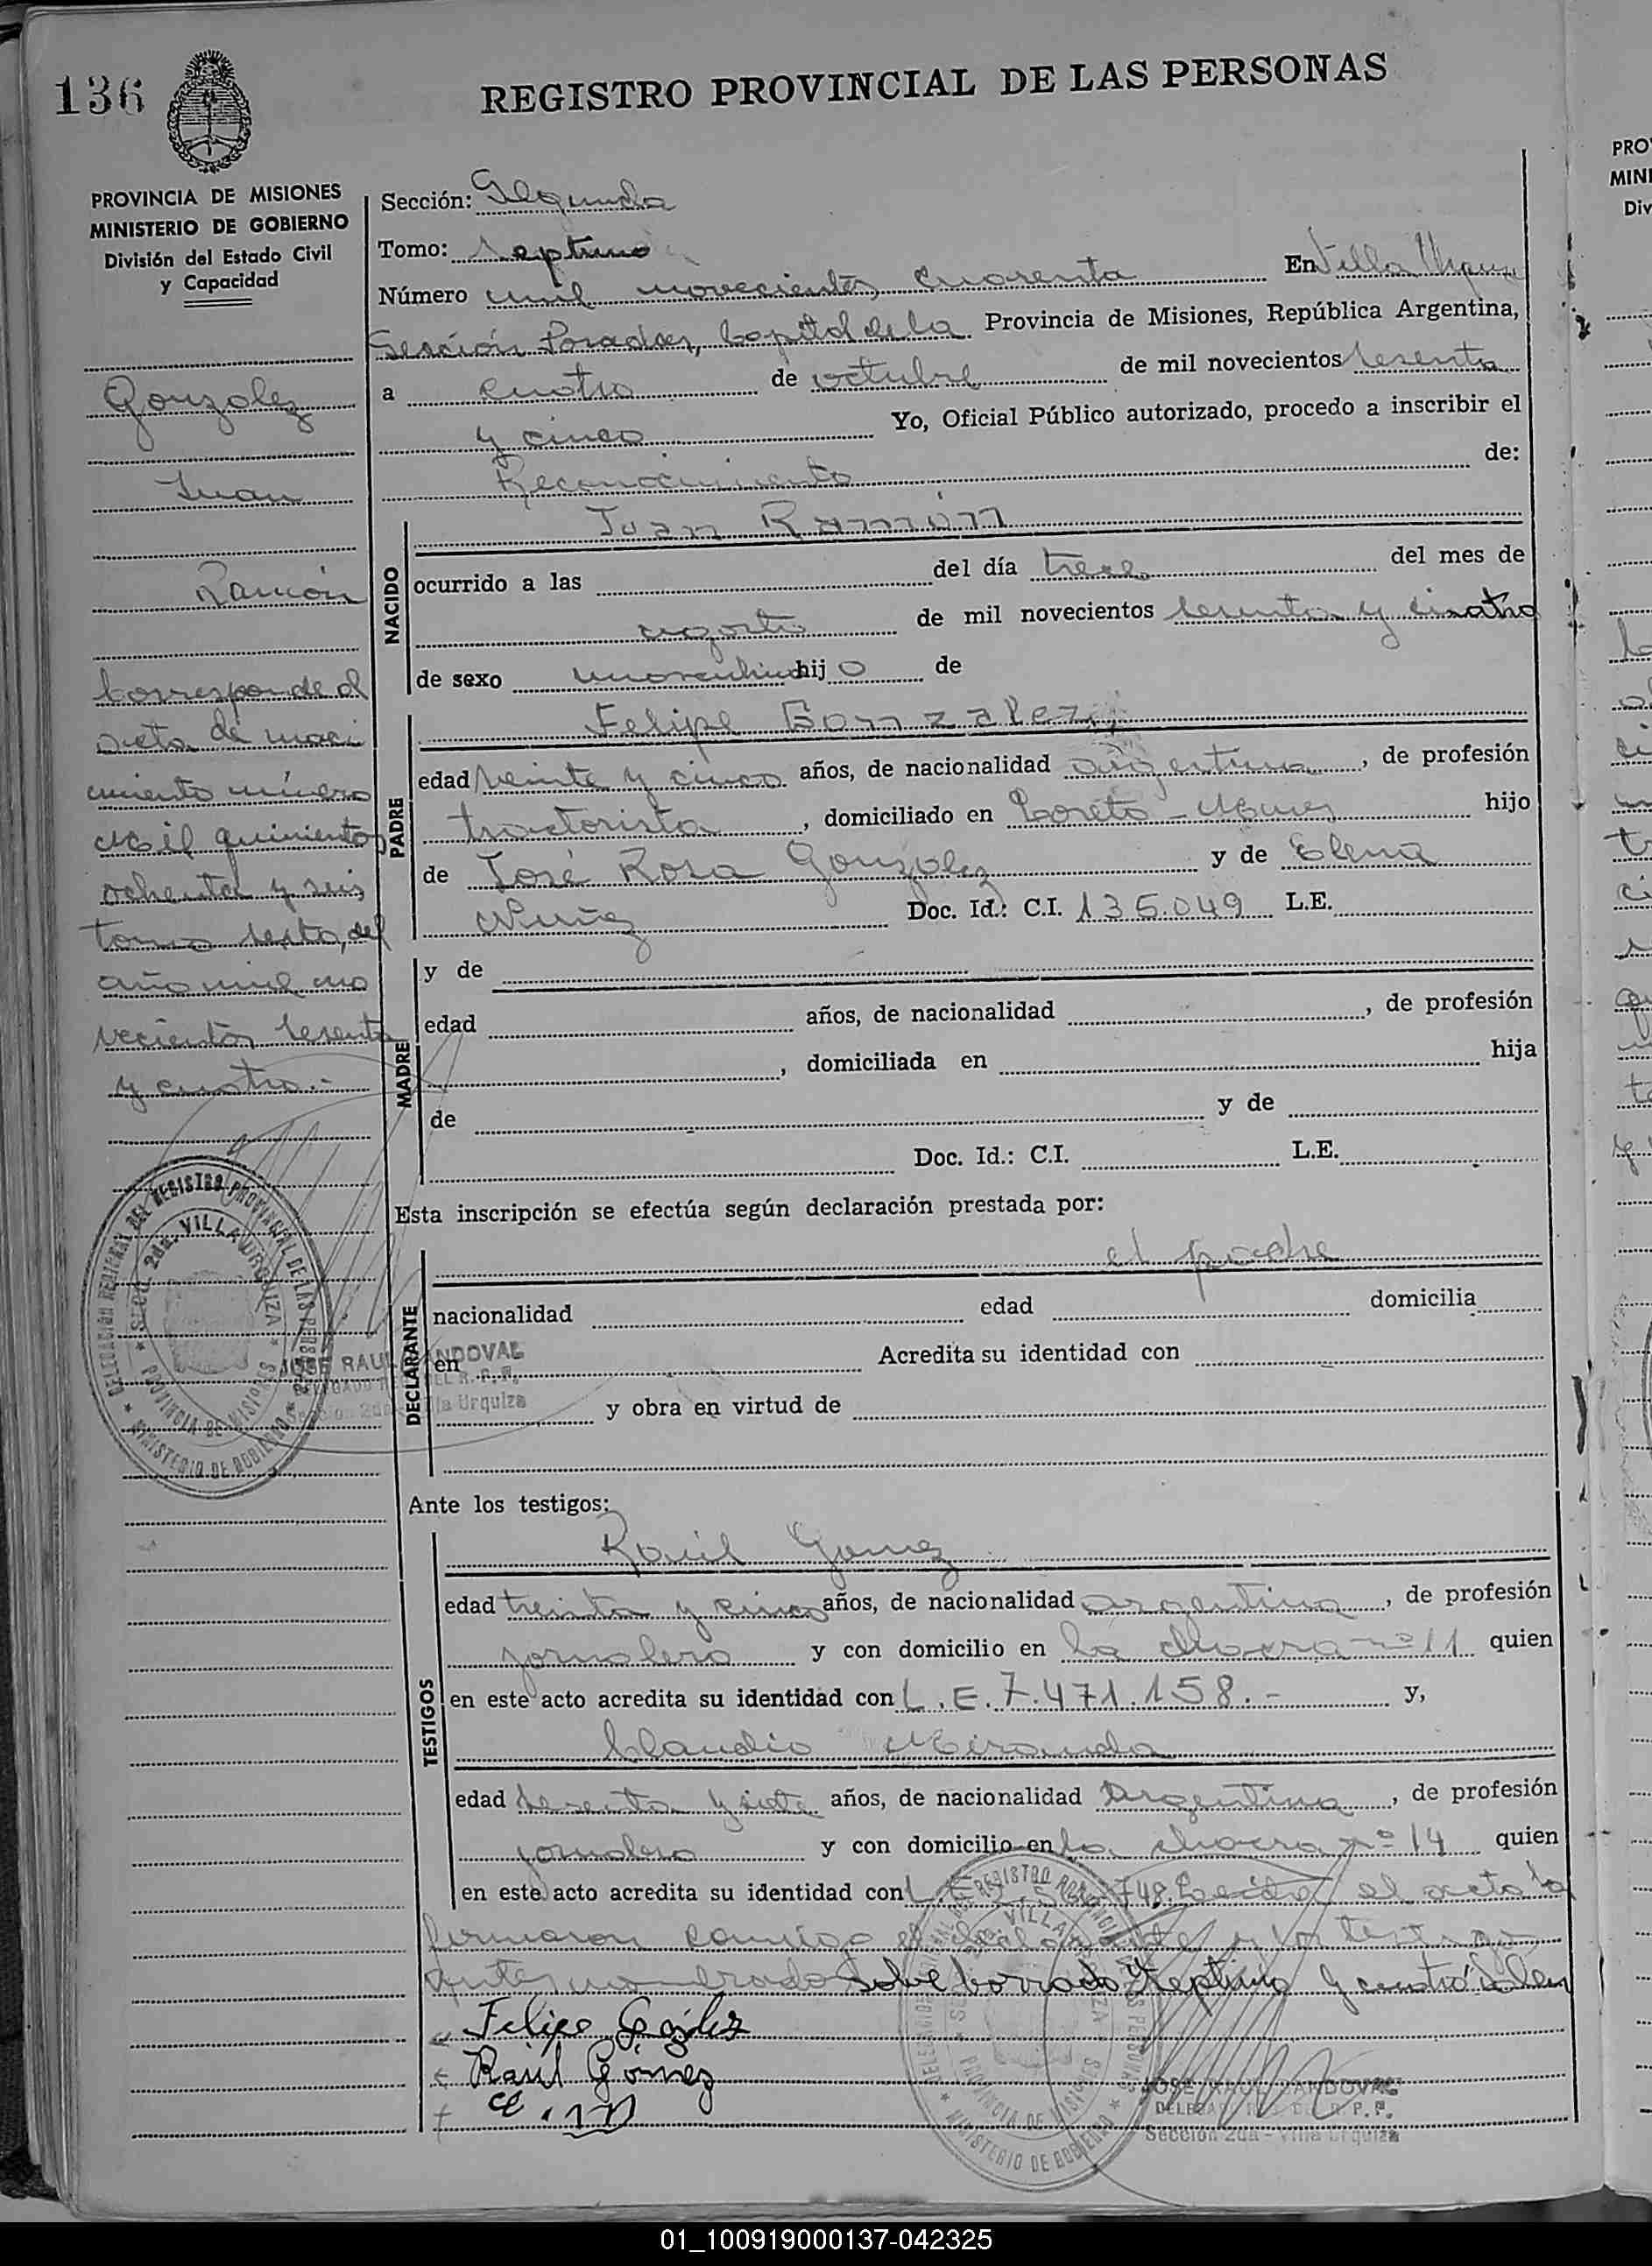 136
REGISTRO PROVINCIAL DE LAS PERSONAS
PROVINCIA DE MISIONES
MINISTERIO DE GOBIERNO
División del Estado Civil
y Capacidad
Gonzalez
Juan
Ramón
Corresponde al
acta de naci
miento número
Mil quinientos
ochenta y seis
tomo sexto, del
año mil no
vecientos sesenta
y cuatro.-
Sección: Segunda
Tomo: septimo
Número mil novecientos cuarenta En Villa Urquiza
Sección Posadas, Capital de la Provincia de Misiones, República Argentina,
a cuatro de octubre de mil novecientos sesenta
y cinco Yo, Oficial Público autorizado, procedo a inscribir el
Reconocimiento de:
NACIDO
Juan Ramón
ocurrido a las del día trece del mes de
agosto de mil novecientos sesenta y cuatro
de sexo masculino hijo de
PADRE
Felipe Gonzalez
edad veinte y cinco años, de nacionalidad argentina, de profesión
tractorista, domiciliado en Loreto - Mnes hijo
de José Rosa Gonzalez y de Elena
Nuñez Doc. Id.: C.I. 135.049 L.E.
MADRE
y de
edad años, de nacionalidad , de profesión
, domiciliada en hija
de y de
Doc. Id.: C.I. L.E.
Esta inscripción se efectúa según declaración prestada por:
DECLARANTE
el padre
nacionalidad edad domicilia
en Acredita su identidad con
y obra en virtud de
DELEGACIÓN REGIONAL DEL REGISTRO PROVINCIAL DE LAS PERSONAS
SECC. 2da. VILLA URQUIZA
PROVINCIA DE MISIONES
MINISTERIO DE GOBIERNO
JOSE RAUL SANDOVAL
DELEGADO REG. DEL R.P.P.
Sección 2da - Villa Urquiza
Ante los testigos:
TESTIGOS
Raúl Gomez
edad treinta y cinco años, de nacionalidad argentina, de profesión
jornalero y con domicilio en la chacra nº 11 quien
en este acto acredita su identidad con L.E. 7.471.158.- y,
Claudio Miranda
edad sesenta y siete años, de nacionalidad Argentina, de profesión
jornalero y con domicilio en la chacra nº 14 quien
en este acto acredita su identidad con 748. Leida el acta la
firmaron conmigo el declarante y los testigos
antes nombrados Sobre borrado: septimo y cuatro: Valen
Felipe Gozlez
Raúl Gómez
Cl. M
DELEGACIÓN REGIONAL DEL REGISTRO PROVINCIAL DE LAS PERSONAS
VILLA URQUIZA
PROVINCIA DE MISIONES
MINISTERIO DE GOBIERNO
JOSE RAUL SANDOVAL
DELEGADO REG. DEL R.P.P.
Sección 2da - Villa Urquiza
PRO
MINI
Div
01_100919000137-042325